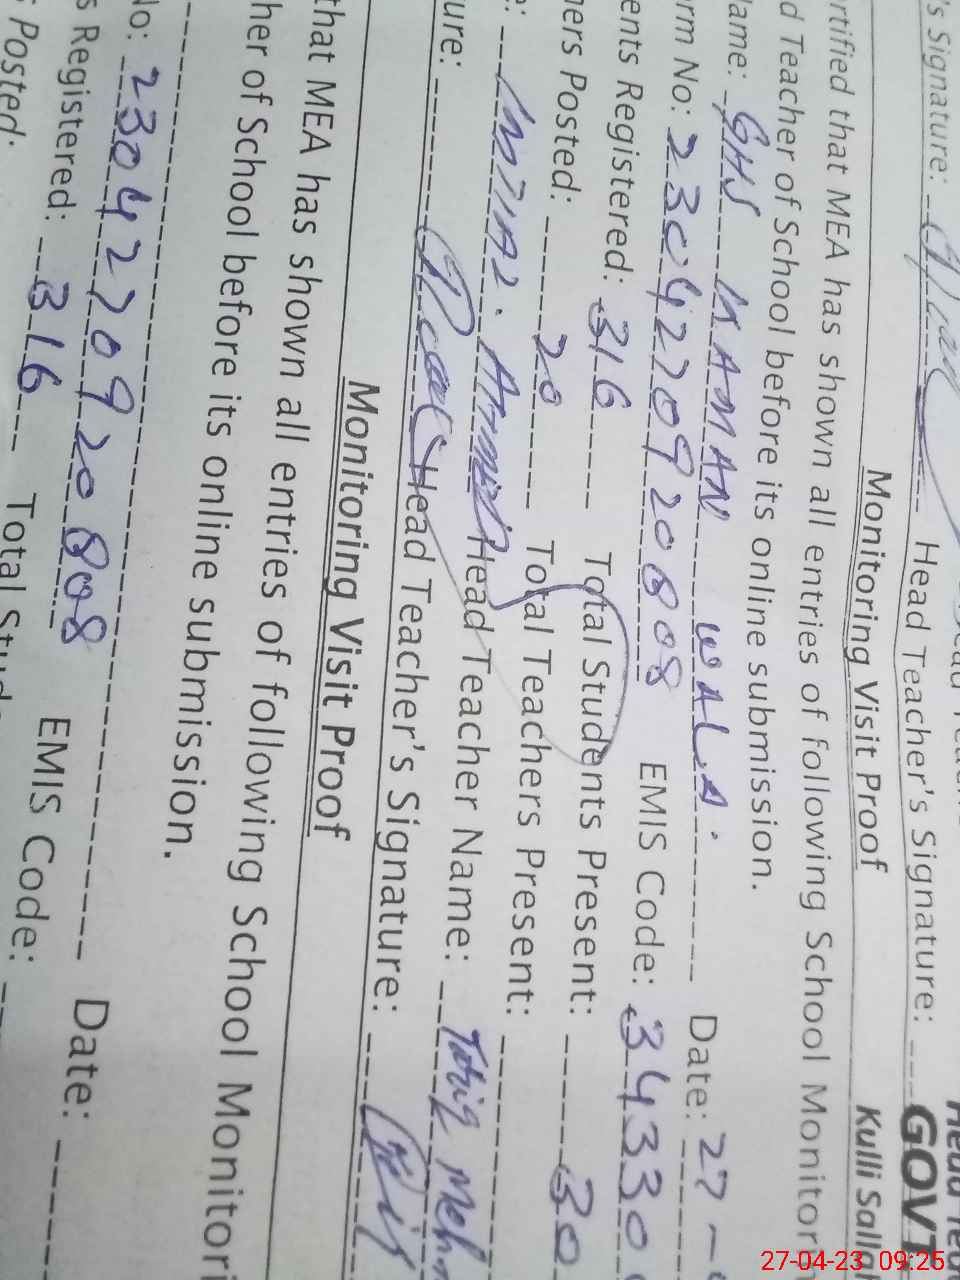 's Signature: Head Teacher's Signature:
GOVT
Monitoring Visit Proof
Kulli Salla
rtified that MEA has shown all entries of following School Monitor
d Teacher of School before its online submission.
lame: GHS Date: 27-
orm No: 23042709 20808 EMIS Code: 34330
ents Registered: 316 Total Students Present: 30
hers Posted: 20 Total Teachers Present:
e: Head Teacher Name: Tariq Meh
ure: Head Teacher's Signature:
Monitoring Visit Proof
that MEA has shown all entries of following School Monitori
her of School before its online submission.
Date:
No: 23042709 20808 EMIS Code:
s Registered: 316 Total Stude
s Posted:
27-04-23 09:25